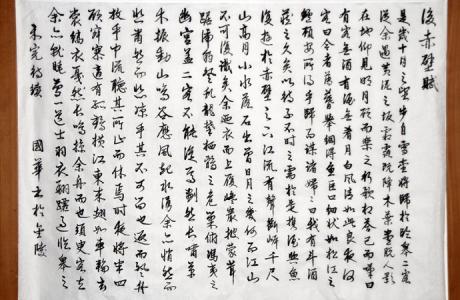 後赤壁賦
是歲十月之望步自雪堂將歸於臨皋二客
從余過黃泥之坂霜露既降木葉盡脫人影
在地仰見明月顧而樂之行歌相答已而嘆曰
有客無酒有酒無肴月白風清如此良夜何
客曰今者薄暮舉網得魚巨口細狀如松江之
鱸顧安所得乎歸而謀諸婦婦曰我有斗酒
藏之久矣以待子不時之需於是攜酒與魚
復遊於赤壁之下江流有聲斷岸千尺
山高月小水落石出曾日月之幾何而江山
不可復識矣余攝衣而上履巉岩披蒙茸
踞虎豹登虯龍攀栖鶻之危巢俯馮夷之
幽宮蓋二客不能從焉劃然長嘯草
木振動山鳴谷應風起水湧余亦悄然而
悲肅然而恐凜乎其不可留也返而登舟
放乎中流聽其所止而休焉時夜將半四
顧寂寥適有孤鶴橫江東來翅如車輪玄
裳縞衣戛然長鳴掠余舟而西也須臾客去
余亦就睡夢一道士羽衣翩躚過臨皋之
未完待續 國華書於金陵